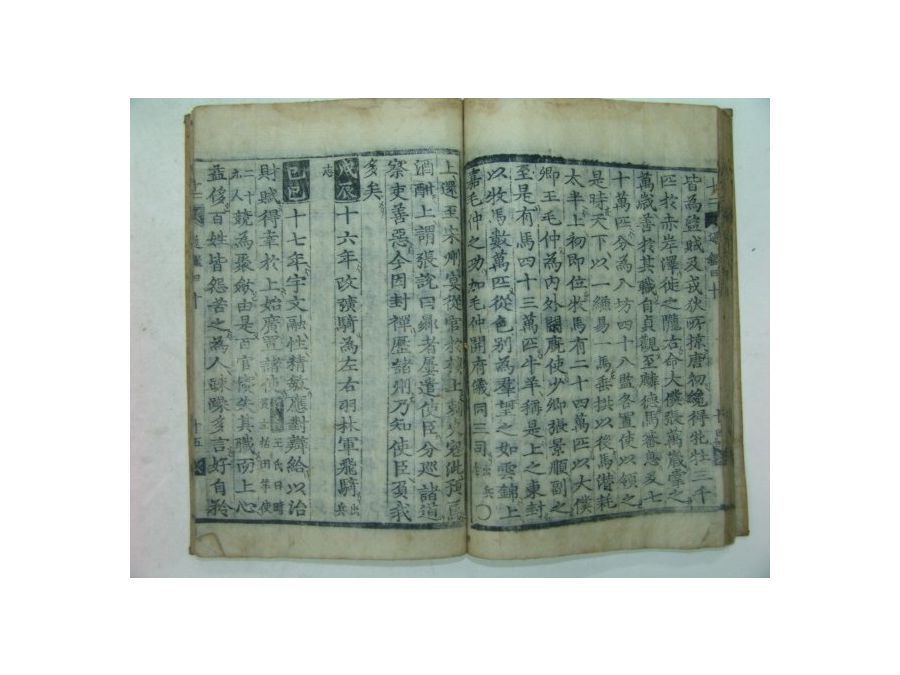 皆為盜賊及戎狄所掠唐初纔得牝牡三千
匹於赤岸澤徙之隴右命太僕張萬歲掌之
萬歲善於其職自貞觀至麟德馬蕃息及七
十萬匹分為八坊四十八監各置使以領之
是時天下以一縑易一馬垂拱以後馬潛耗
太半上初即位牧馬有二十四萬匹以太僕
卿王毛仲為內外閑廐使少卿張景順副之
至是有馬四十三萬匹牛羊稱是上之東封
以牧馬數萬匹從色別為羣望之如雲錦上
嘉毛仲之功加毛仲開府儀同三司出兵志〇
上還至宋州宴從官於樓上刺史寇泚預焉
酒酣上謂張說曰曏者屢遣使臣分巡諸道
察吏善惡今因封禪歷諸州乃知使臣負我
多矣
戊辰十六年改彍騎為左右羽林軍飛騎出兵
志
己巳十七年宇文融性精敏應對辯給以治
財賦得幸於上始廣置諸使
競為聚斂由是百官浸失其職而上心
益侈百姓皆怨苦之為人踈躁多言好自矜
十五